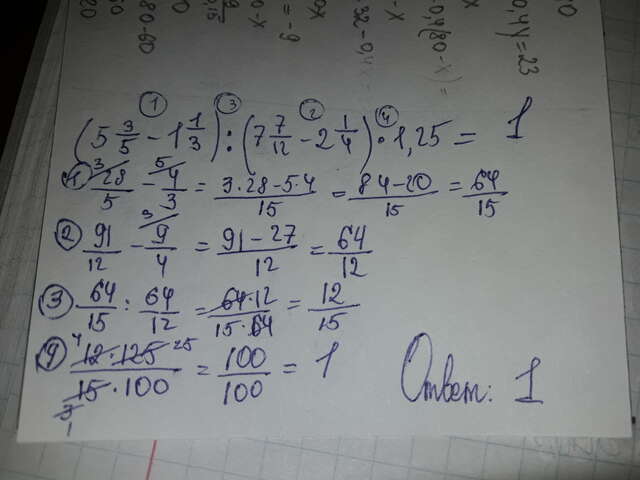 (5 3/5 - 1 1/3) : (7 7/12 - 2 1/4) · 1,25 = 1
① 28/5 - 4/3 = 3·28-5·4/15 = 84-20/15 = 64/15
② 91/12 - 9/4 = 91-27/12 = 64/12
③ 64/15 : 64/12 = 64·12/15·64 = 12/15
④ 12·125/15·100 = 100/100 = 1
Ответ: 1
20
80-60
0-x
= -9
0x
32-0,4x =
-x
0,4(80-x) =
x
0,4y=23